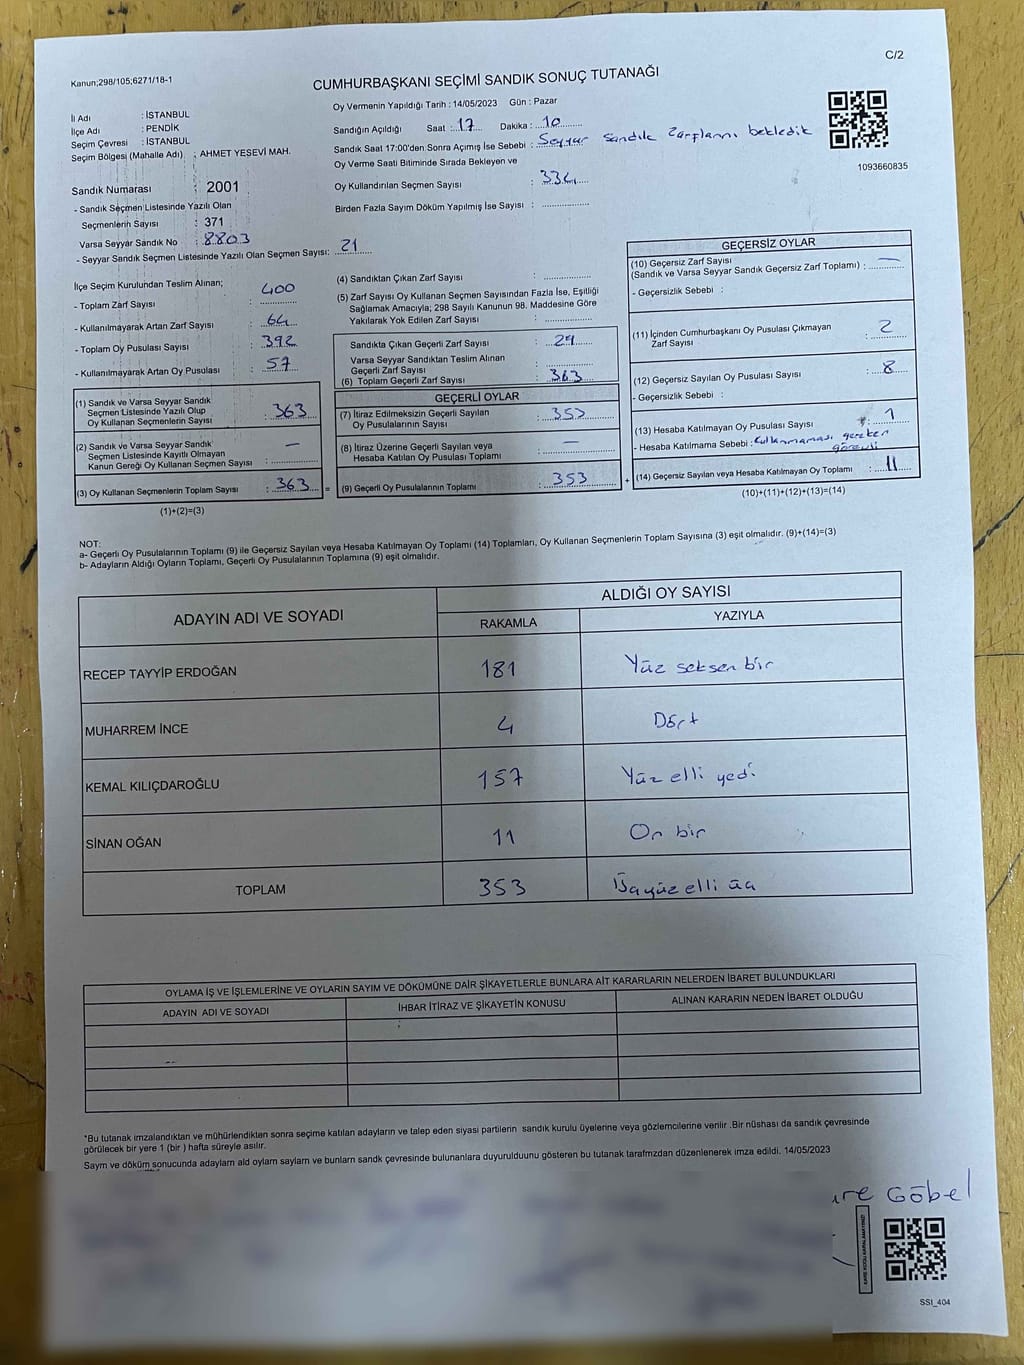 C/2
Kanun;298/105;6271/18-1
CUMHURBAŞKANI SEÇİMİ SANDIK SONUÇ TUTANAĞI
İl Adı : İSTANBUL
İlçe Adı : PENDİK
Seçim Çevresi : İSTANBUL
Seçim Bölgesi (Mahalle Adı) : AHMET YESEVİ MAH.
Oy Vermenin Yapıldığı Tarih : 14/05/2023 Gün : Pazar
Sandığın Açıldığı Saat : 17 Dakika : 10
Sandık Saat 17:00'den Sonra Açımış İse Sebebi : Seyyar sandık zarflarını bekledik
Oy Verme Saati Bitiminde Sırada Bekleyen ve
Oy Kullandırılan Seçmen Sayısı : 334
Birden Fazla Sayım Döküm Yapılmış İse Sayısı :
1093660835
Sandık Numarası : 2001
- Sandık Seçmen Listesinde Yazılı Olan
Seçmenlerin Sayısı : 371
Varsa Seyyar Sandık No : 8803
- Seyyar Sandık Seçmen Listesinde Yazılı Olan Seçmen Sayısı: 21
İlçe Seçim Kurulundan Teslim Alınan; 400
- Toplam Zarf Sayısı :
- Kullanılmayarak Artan Zarf Sayısı : 64
- Toplam Oy Pusulası Sayısı : 392
- Kullanılmayarak Artan Oy Pusulası : 57
(1) Sandık ve Varsa Seyyar Sandık
Seçmen Listesinde Yazılı Olup
Oy Kullanan Seçmenlerin Sayısı : 363
(2) Sandık ve Varsa Seyyar Sandık
Seçmen Listesinde Kayıtlı Olmayan
Kanun Gereği Oy Kullanan Seçmen Sayısı : —
(3) Oy Kullanan Seçmenlerin Toplam Sayısı : 363 =
(1)+(2)=(3)
(4) Sandıktan Çıkan Zarf Sayısı :
(5) Zarf Sayısı Oy Kullanan Seçmen Sayısından Fazla İse, Eşitliği
Sağlamak Amacıyla; 298 Sayılı Kanunun 98. Maddesine Göre
Yakılarak Yok Edilen Zarf Sayısı :
Sandıkta Çıkan Geçerli Zarf Sayısı :
Varsa Seyyar Sandıktan Teslim Alınan
Geçerli Zarf Sayısı :
(6) Toplam Geçerli Zarf Sayısı : 363
GEÇERLİ OYLAR
(7) İtiraz Edilmeksizin Geçerli Sayılan
Oy Pusulasının Sayısı : 353
(8) İtiraz Üzerine Geçerli Sayılan veya
Hesaba Katılan Oy Pusulası Toplamı : —
(9) Geçerli Oy Pusulalarının Toplamı : 353 +
GEÇERSİZ OYLAR
(10) Geçersiz Zarf Sayısı
(Sandık ve Varsa Seyyar Sandık Geçersiz Zarf Toplamı) : —
- Geçersizlik Sebebi :
(11) İçinden Cumhurbaşkanı Oy Pusulası Çıkmayan
Zarf Sayısı : 2
(12) Geçersiz Sayılan Oy Pusulası Sayısı : 8
- Geçersizlik Sebebi :
(13) Hesaba Katılmayan Oy Pusulası Sayısı : 1
- Hesaba Katılmama Sebebi : kullanmaması gereken
görevli
(14) Geçersiz Sayılan veya Hesaba Katılmayan Oy Toplamı : 11
(10)+(11)+(12)+(13)=(14)
NOT:
a- Geçerli Oy Pusulalarının Toplamı (9) ile Geçersiz Sayılan veya Hesaba Katılmayan Oy Toplamı (14) Toplamları, Oy Kullanan Seçmenlerin Toplam Sayısına (3) eşit olmalıdır. (9)+(14)=(3)
b- Adayların Aldığı Oyların Toplamı, Geçerli Oy Pusulalarının Toplamına (9) eşit olmalıdır.
ADAYIN ADI VE SOYADI ALDIĞI OY SAYISI
RAKAMLA YAZIYLA
RECEP TAYYİP ERDOĞAN 181 Yüz seksen bir
MUHARREM İNCE 4 Dört
KEMAL KILIÇDAROĞLU 157 Yüz elli yedi
SİNAN OĞAN 11 On bir
TOPLAM 353 elli
OYLAMA İŞ VE İŞLEMLERİNE VE OYLARIN SAYIM VE DÖKÜMÜNE DAİR ŞİKAYETLERLE BUNLARA AİT KARARLARIN NELERDEN İBARET BULUNDUKLARI
ADAYIN ADI VE SOYADI İHBAR İTİRAZ VE ŞİKAYETİN KONUSU ALINAN KARARIN NEDEN İBARET OLDUĞU
*Bu tutanak imzalandıktan ve mühürlendikten sonra seçime katılan adayların ve talep eden siyasi partilerin sandık kurulu üyelerine veya gözlemcilerine verilir .Bir nüshası da sandık çevresinde
görülecek bir yere 1 (bir ) hafta süreyle asılır.
Sayım ve döküm sonucunda adayların ald oylam sayların ve bunların sandk çevresinde bulunanlara duyurulduunu gösteren bu tutanak tarafmzdan düzenlenerek imza edildi. 14/05/2023
Göbel
SSI_404